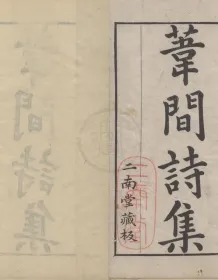 葦間詩集
二南堂藏板